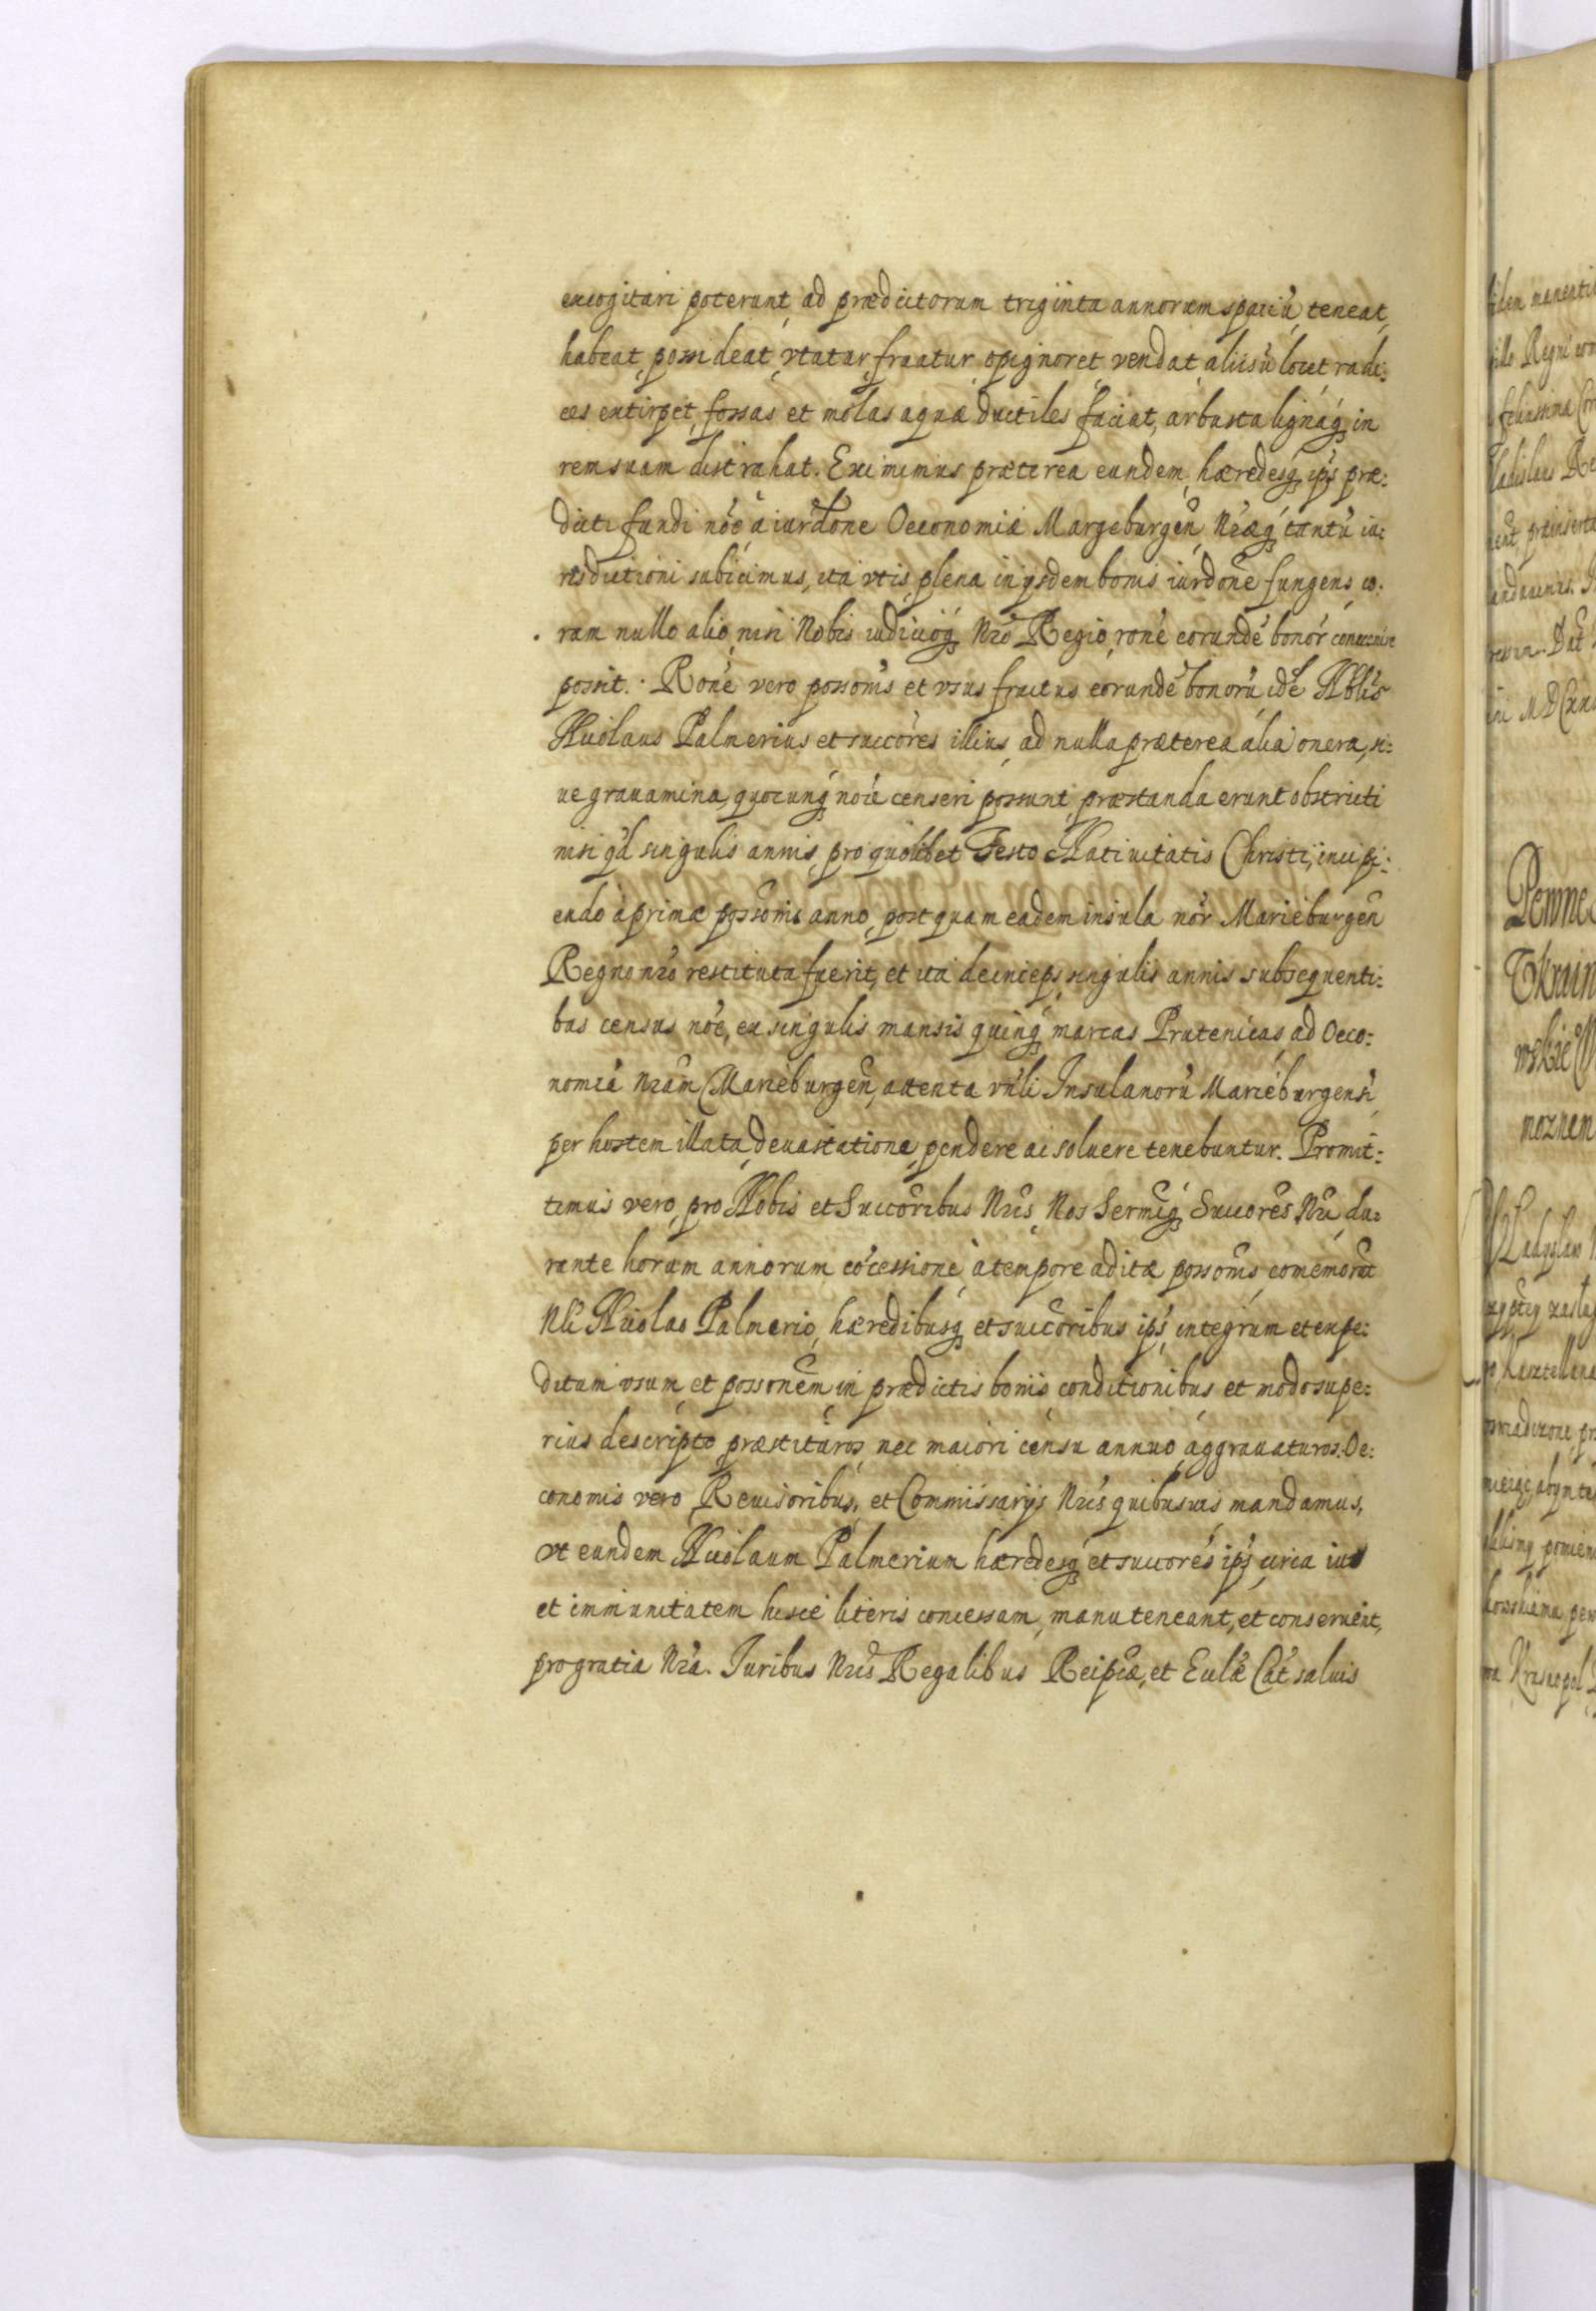 excogitari poterunt, ad prædictorum triginta annorum spaciũ teneat,
habeat, possideat, vtatur, fruatur, opignoret vendat, aliisũ locet radi:
ces extirpet, fossas et molas aquæ ductiles faciat, arbusta lignaq; in
rem suam distrahat. Eximimus præterea eundem, hæredesq; ips̃ præ:
dicti fundi nõe à iurd̃one Oeconomiæ Margeburgeñ, Nr̃æq; tantũ iu:
risdictioni subiicimus, ita vt is, plena in ijsdem bonis iurd̃one fungens, co:
ram nullo alio, nisi Nobis iudicioq; Nr̃o Regio, rõne eorundẽ bonor̃ conueniri
possit. Rõne vero possõnis et vsus fructus eorundẽ bonorũ idẽ Nb̃lis
Nicolaus Palmerius et succõres illius, ad nulla præterea alia onera, si:
ue grauamina, quocunq; nõie censeri possunt, præstanda erunt obstricti
nisi qd̃ singulis annis, pro quolibet Festo Natiuitatis Christi, incipi:
endo à primæ possõnis anno, post quam eadem insula nõr Marieburgeñ
Regno nr̃o restituta fuerit, et ita deinceps, singulis annis subsequenti:
bus census nõe, ex singulis mansis quinq; marcas Prutenicas ad Oeco:
nomiã Nr̃am Marieburgeñ, attenta vr̃li Insulanorũ Marieburgensĩ
per hostem illata, deuastatione, pendere ac soluere tenebuntur. Promit:
timus vero, pro Nobis et Succõribus Nr̃is, Nos Sermiq; Succores Nr̃i du:
rante horum annorum cõcessione, à tempore aditæ possõnis, comemorat̃
Nb̃li Nicolao Palmerio, hæredibusq; et succõribus ips̃, integrum et expe:
ditum vsum, et possonẽm in prædictis bonis, conditionibus et modo supe:
rius descripto præstituros, nec maiori censu annuo, aggrauaturos. Oe:
conomis vero, Reuisoribus, et Commissarijs Nr̃is quibusuis mandamus,
vt eundem Nicolaum Palmerium hæredesq; et succores ips̃ circa ius
et immunitatem hisce literis concessam, manu teneant, et conseruent,
pro gratia Nr̃a. Iuribus Nr̃is Regalibus Reipc̃æ, et Eccl̃æ Cat̃ saluis